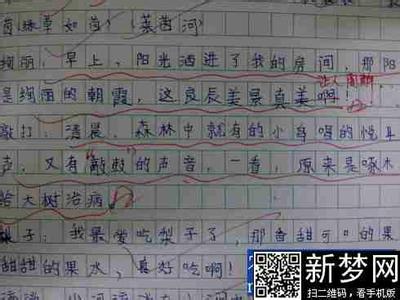 茵绿草如茵)(莱茵河)
绚丽:早上,阳光洒进了我的房间,那阳
是绚丽的朝霞,这良辰美景真美啊!
敲打:清晨,森林中就有的小鸟唱的悦耳
声,又有“敲敲的声音,一看,原来是啄木
给大树治病
梨子:我最爱吃梨子了,那香甜可口的果
甜甜的果水,真好吃啊!
新梦网
扫二维码,看手机版